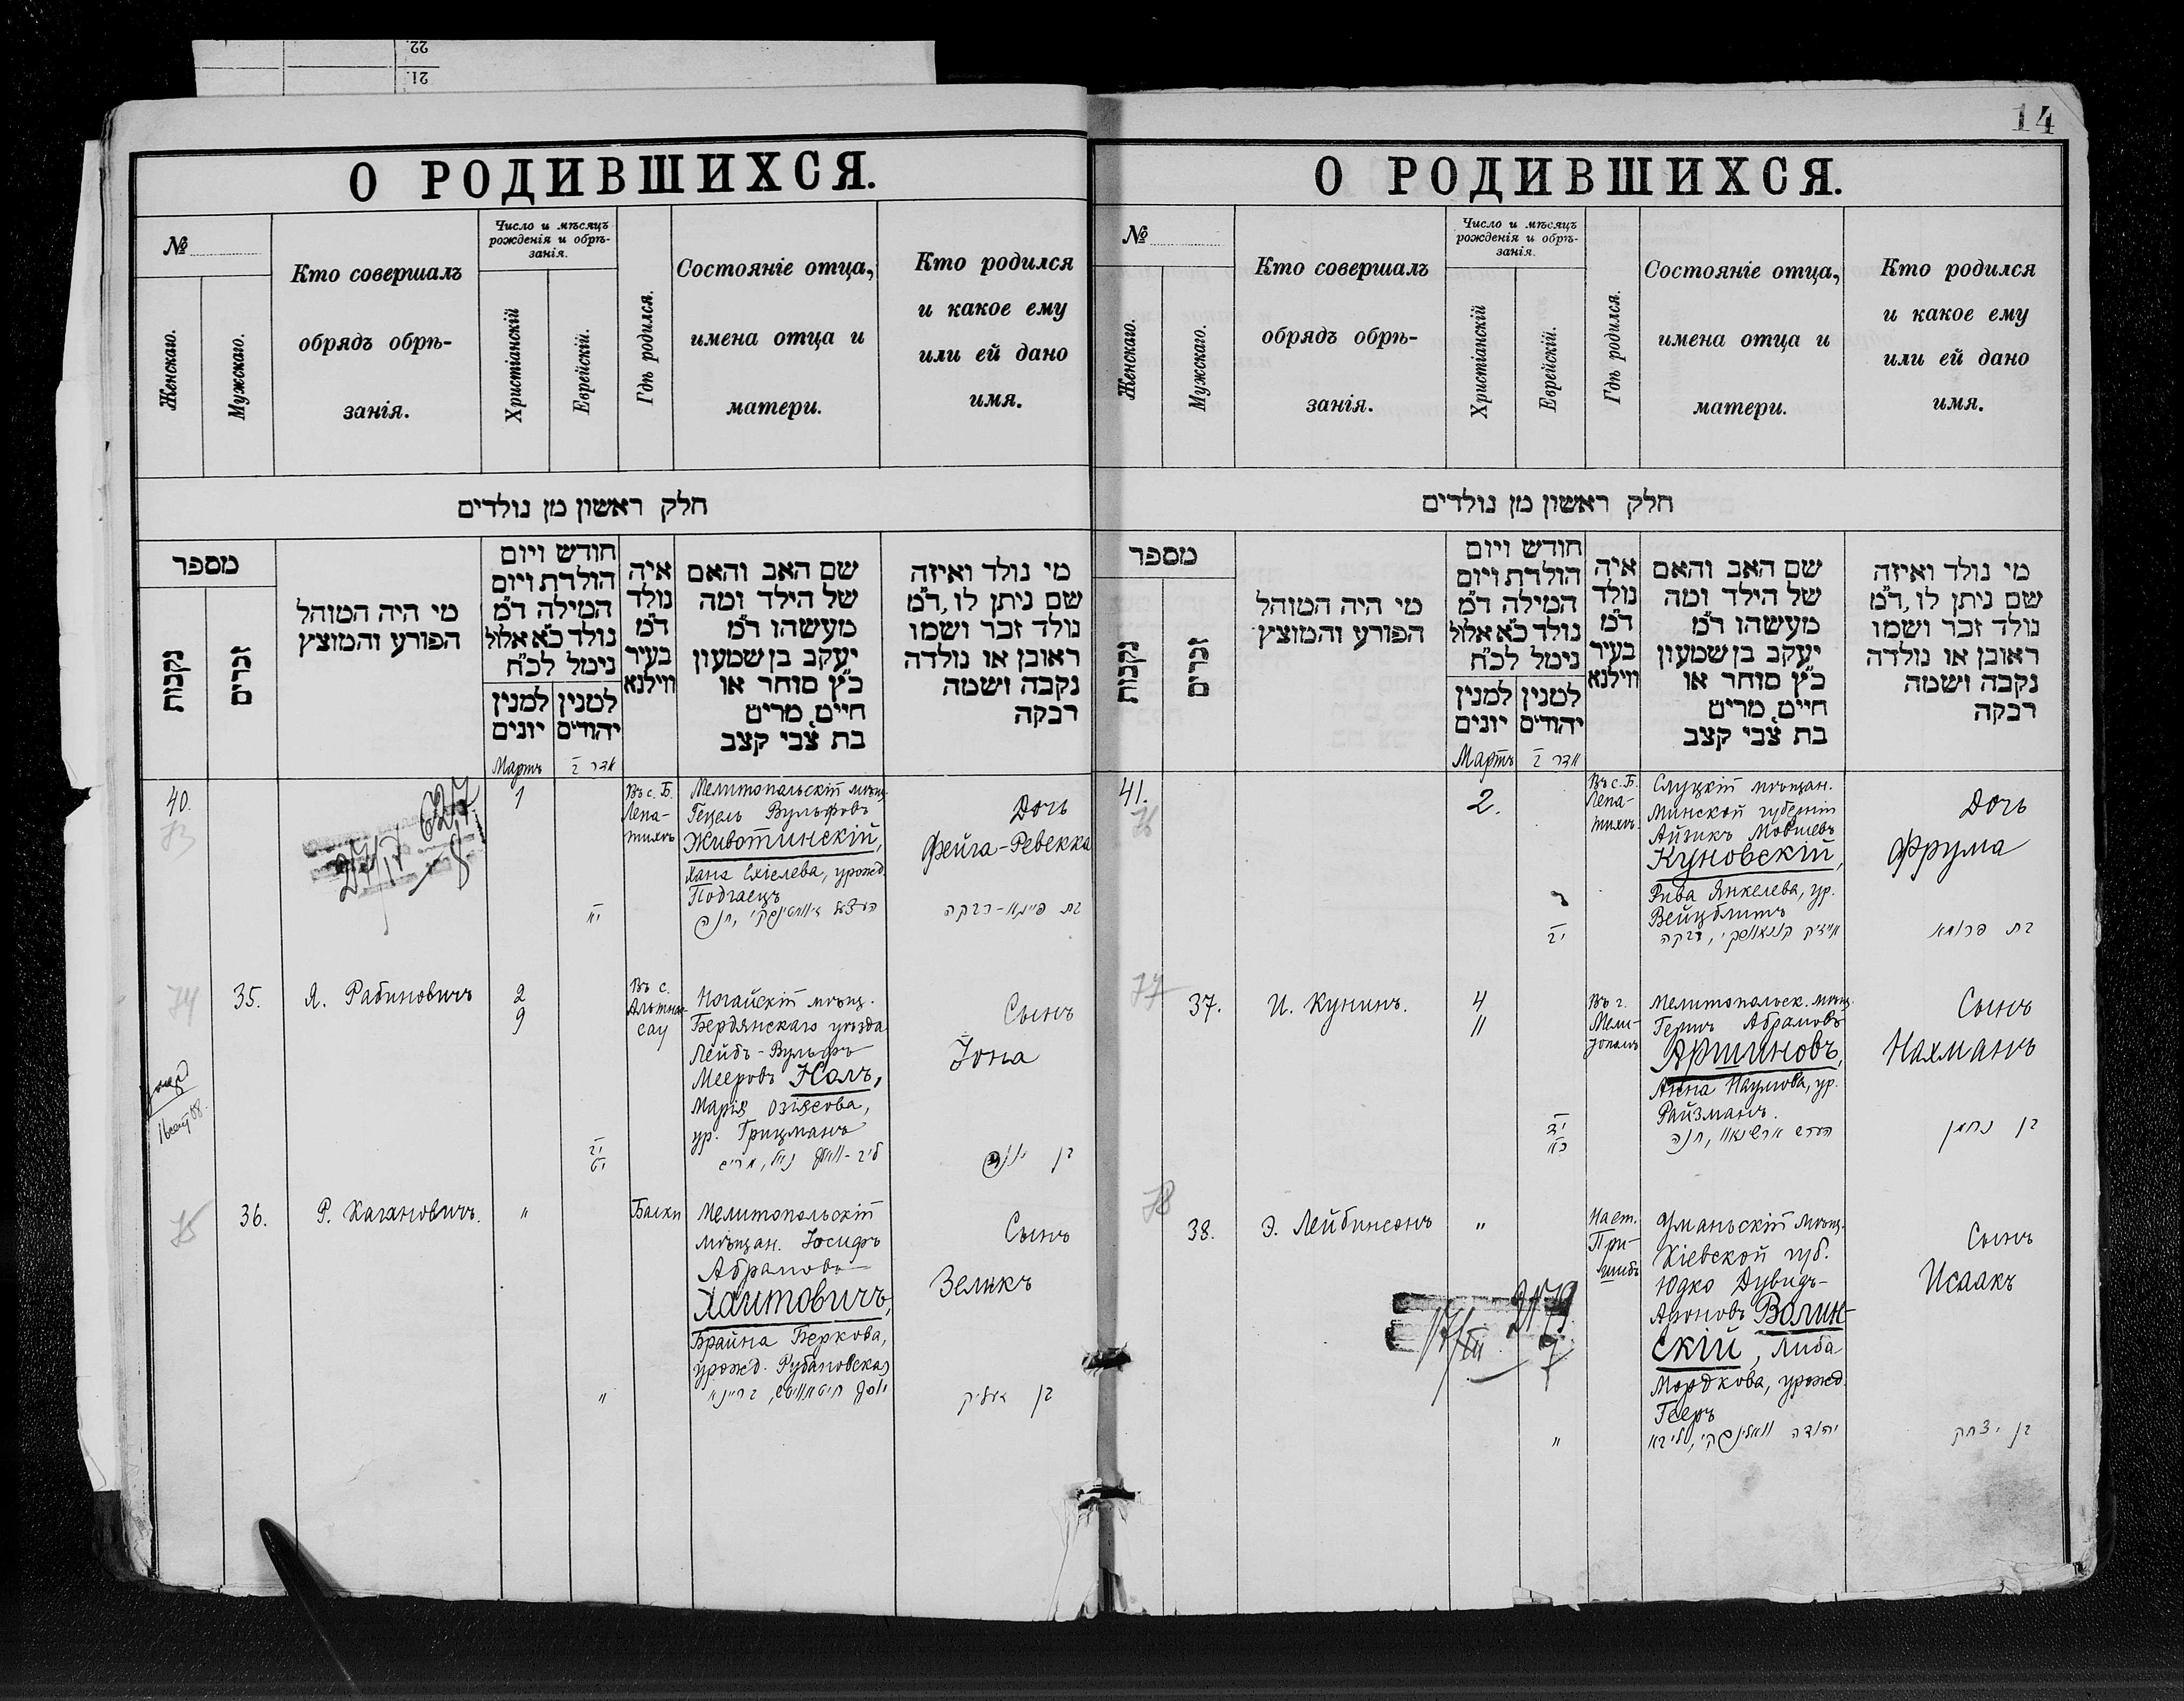 22.
21.
14
О РОДИВШИХСЯ.
№
Женскаго.
Мужскаго.
Кто совершалъ
обрядъ обрѣ-
занія.
Число и мѣсяцъ
рожденія и обрѣ-
занія.
Христіанскій
Еврейскій.
Гдѣ родился.
Состояніе отца,
имена отца и
матери.
Кто родился
и какое ему
или ей дано
имя.
חלק ראשון מן נולדים
מספר
נקבות
זכרים
מי היה המוהל
הפורע והמוצץ
חודש ויום
הולדת ויום
המילה ד"מ
נולד כ"א אלול
נימל לכ"ח
למנין
יונים
למנין
יהודים
איה
נולד
ד"מ
בעיר
ווילנא
שם האב והאם
של הילד ומה
מעשהו ד"מ
יעקב בן שמעון
כ"ץ סוחר או
חיים, מרים
בת צבי קצב
מי נולד ואיזה
שם ניתן לו, ד"מ
נולד זכר ושמו
ראובן או נולדה
נקבה ושמה
רבקה
Мартъ
אדר ב
40.
73
1
Въ с. Б.
Лепа-
тихѣ
Мелитопольскій мѣщ.
Гецель Вульфовъ
Животинскій,
Хана Ехіелева, урожд.
Подгаецъ
יא
Дочь
Фейга-Ревекка
בת פייגא-רבקה
74
35.
Я. Рабиновичъ
2
9
Въ с.
Альтна-
сау
Ногайскій мѣщ.
Бердянскаго уѣзда
Лейбъ-Вульфъ
Мееровъ Нолъ,
Марія Озіясова,
ур. Грицманъ
יב
יט
Сынъ
Іона
בן יונה
75
36.
Р. Кагановичъ.
"
Балки
Мелитопольскій
мѣщан. Іосифъ
Абрамовъ
Хаитовичъ,
Брайна Беркова,
урожд. Рубановская
"
Сынъ
Зеликъ
בן זעליק
О РОДИВШИХСЯ.
№
Женскаго.
Мужскаго.
Кто совершалъ
обрядъ обрѣ-
занія.
Число и мѣсяцъ
рожденія и обрѣ-
занія.
Христіанскій
Еврейскій.
Гдѣ родился.
Состояніе отца,
имена отца и
матери.
Кто родился
и какое ему
или ей дано
имя.
חלק ראשון מן נולדים
מספר
נקבות
זכרים
מי היה המוהל
הפורע והמוצץ
חודש ויום
הולדת ויום
המילה ד"מ
נולד כ"א אלול
נימל לכ"ח
למנין
יונים
למנין
יהודים
איה
נולד
ד"מ
בעיר
ווילנא
שם האב והאם
של הילד ומה
מעשהו ד"מ
יעקב בן שמעון
כ"ץ סוחר או
חיים, מרים
בת צבי קצב
מי נולד ואיזה
שם ניתן לו, ד"מ
נולד זכר ושמו
ראובן או נולדה
נקבה ושמה
רבקה
Мартъ
אדר ב
41.
76
2.
Въ с. Б.
Лепа-
тихѣ.
Слуцкій мѣщан.
Минской губерніи
Айзикъ Мовшевъ
Куновскій,
Рива Янкелева, ур.
Вейцблитъ
יב
Дочь
Фрума
בת פרומא
77
37.
И. Кунинъ.
4
11
Въ г.
Мели-
тополѣ
Мелитопольск. мѣщ.
Гершъ Абрамовъ
Аршиновъ,
Анна Наумова, ур.
Райзманъ.
יד
כא
הערש ארשינאוו, חנה
Сынъ
Нахманъ
בן נחמן
78
38.
Э. Лейбинсонъ
"
На ст.
При-
шибъ
Уманьскій мѣщ.
Кіевской губ.
Юдко Дувидъ-
Ароновъ Волин-
скій, Либа
Мордкова, урожд.
Гееръ
"
יהודה וואלינסקי, ליבא
Сынъ
Исаакъ
בן יצחק